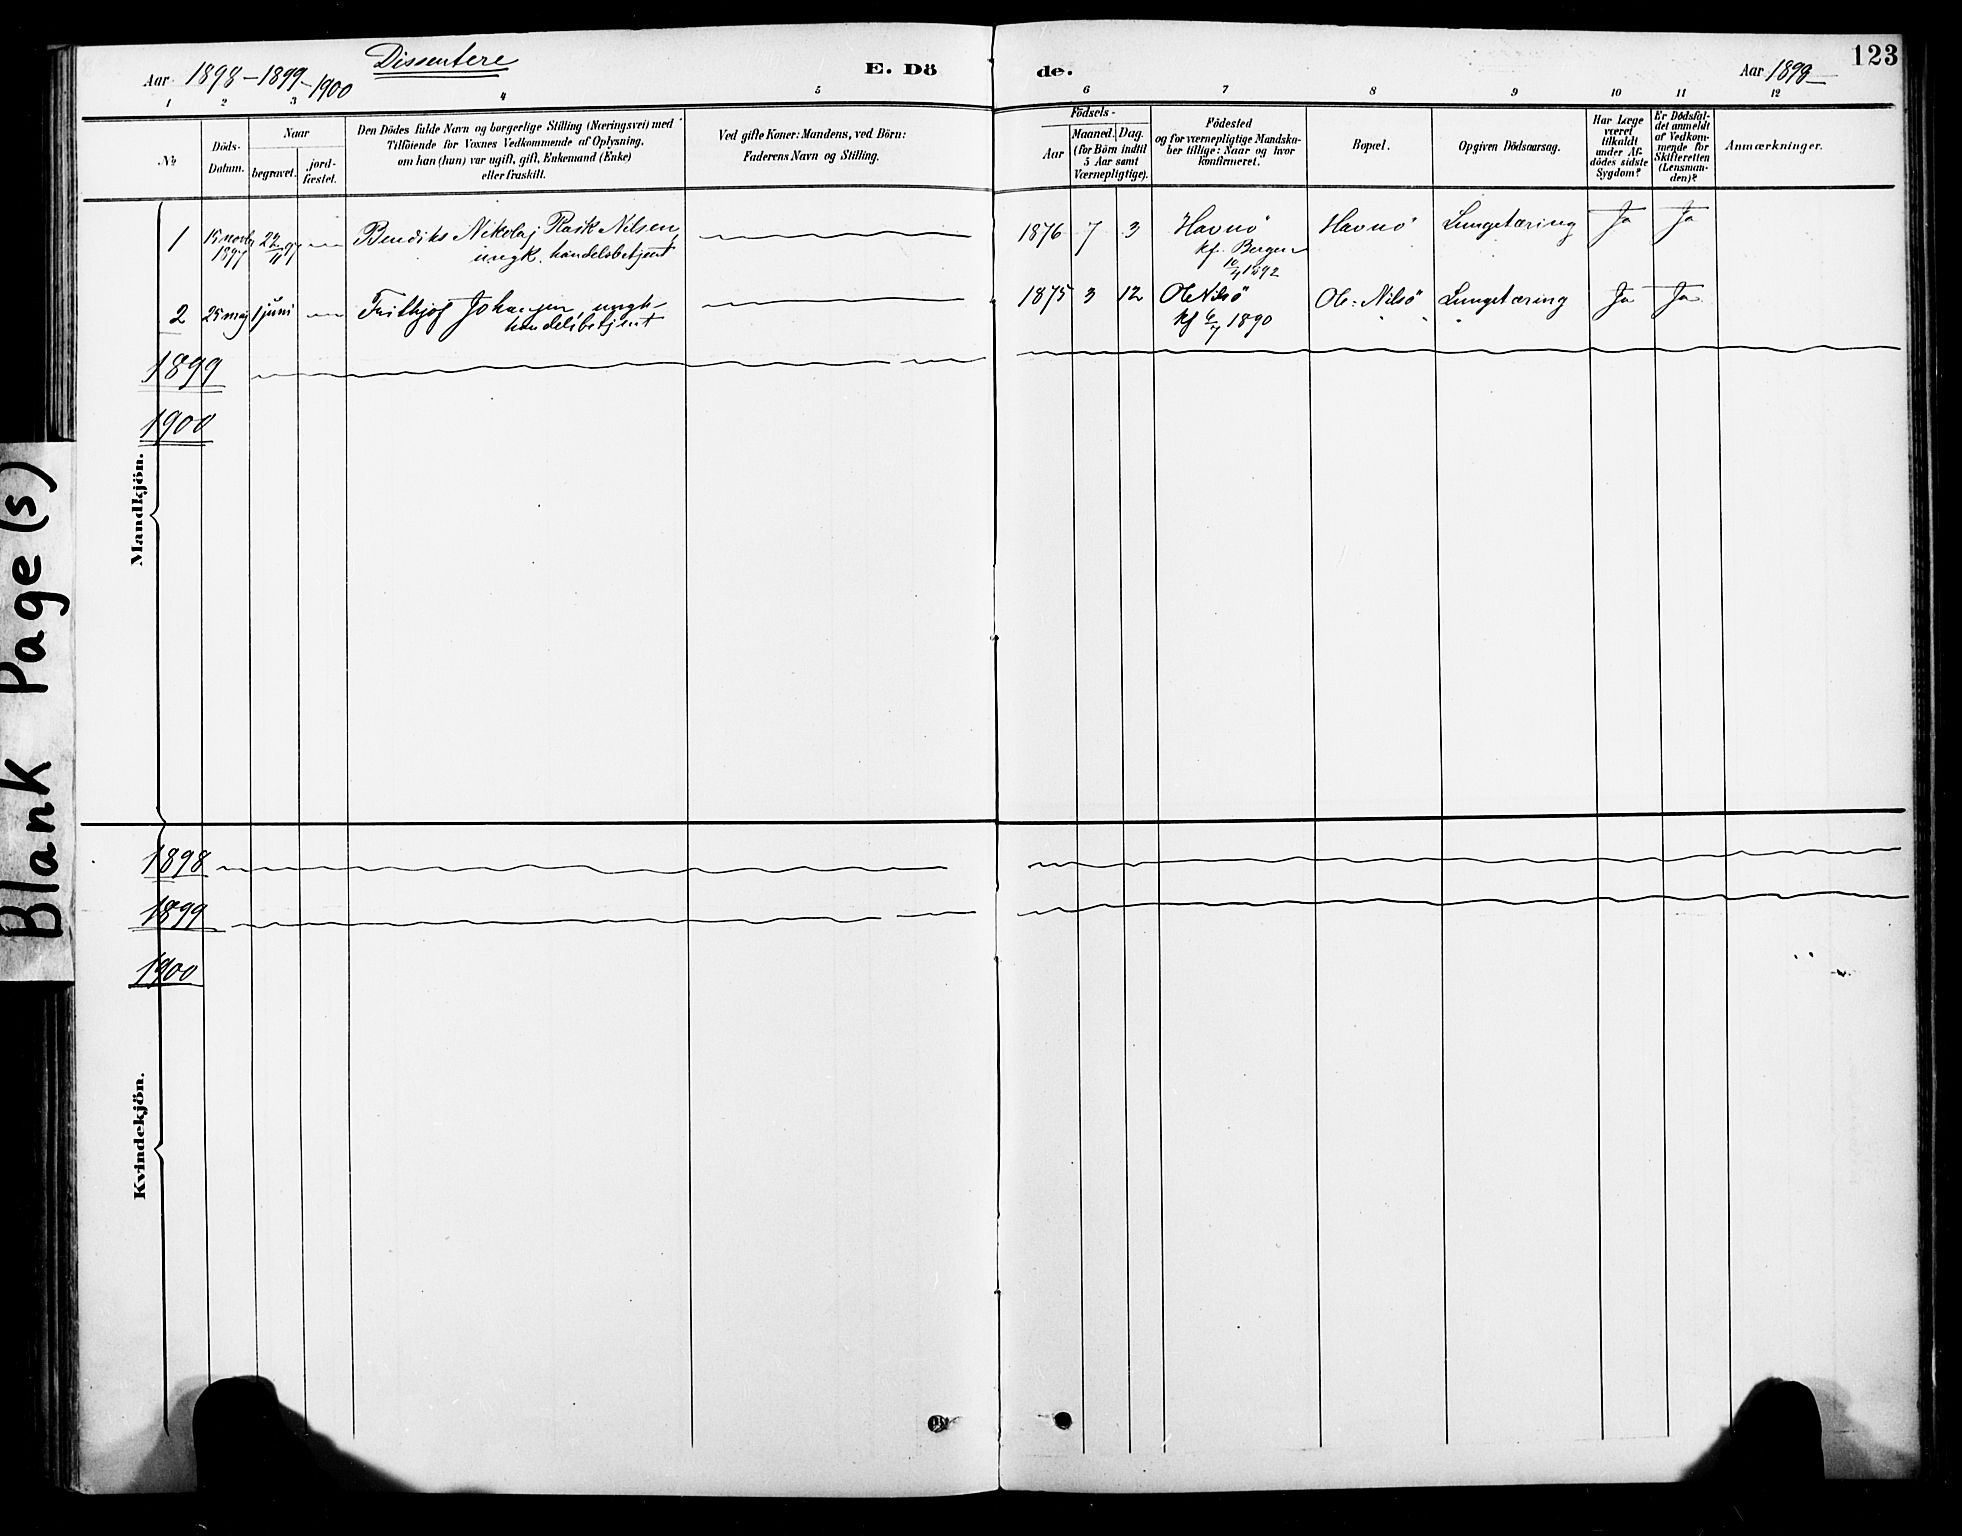 Dissentere
Aar 1898-1899-1900
E. Dö
de.
Aar 1898-
123
1 2 3 4 5 6 7 8 9 10 11 12
№
Döds-
Datum.
Naar
begravet.
jord-
fæstet.
Den Dödes fulde Navn og borgerlige Stilling (Næringsvei) med
Tilföiende for Voxnes Vedkommende af Oplysning,
om han (hun) var ugift, gift, Enkemand (Enke)
eller fraskilt.
Ved gifte Koner: Mandens, ved Börn:
Faderens Navn og Stilling.
Födsels-
Aar
Maaned. Dag.
(for Börn indtil
5 Aar samt
Værnepligtige).
Födested
og for værnepligtige Mandska-
ber tillige: Naar og hvor
konfirmeret.
Bopæl.
Opgiven Dödsaarsag.
Har Læge
været
tilkaldt
under Af-
dödes sidste
Sygdom?
Er Dödsfal-
det anmeldt
af Vedkom-
mende for
Skifteretten
(Lensman-
den)?
Anmærkninger.
Mandkjön.
1 15 novbr 1897 Bendiks Nikolaj Rask Nilsen, 1876 7 3 Havnö Havnö Lungetæring Ja Ja
ungk. handelsbetjent kf. Bergen
1892
2 25 maj 1 juni Frithjof Johansen, ungk- 1875 3 12 Ol: Nilsö Ol: Nilsö Lungetæring Ja Ja
handelsbetjent kf 6/7 1890
1899
1900
Kvindekjön.
1898
1899
1900
Blank Page(s)